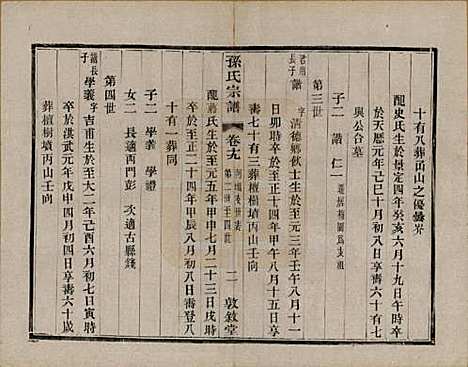 十有八葬茁山之優曇岕
配史氏生於景定四年癸亥六月十九日午時卒
於天曆元年己巳十月初八日享壽六十有七
與公合墓
子二 譜 仁一 遷居梅園爲支祖
第三世
君用長子 譜 字清德鄉飲士生於至元三年壬子八月十一
日卯時卒於至正十四年甲午八月十五日享
壽七十有三葬檀樹墳丙山壬向
孫氏宗譜 卷九 第二世至四世 二 敦敘堂
配蔣氏生於至元年甲申七月二十三日戌時
卒於至正二十四年甲辰八月初七日壽登八
十有一葬同
子二 學義 學禮
女二 長適西門彭 次適古縣錢
第四世
譜長子 學義 字吉甫生於至大二年己酉六月初七日寅時
卒於洪武元年戊申四月初四日享壽六十歲
葬檀樹墳丙山壬向